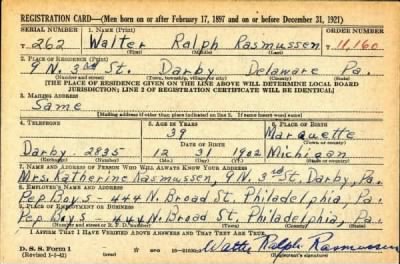 REGISTRATION CARD—(Men born on or after February 17, 1897 and on or before December 31, 1921)
SERIAL NUMBER 1. NAME (Print) ORDER NUMBER
T 262 Walter Ralph Rasmussen T 11,160
(First) (Middle) (Last)
2. PLACE OF RESIDENCE (Print)
9 N. 3rd St. Darby Delaware Pa.
(Number and street) (Town, township, village, or city) (County) (State)
[THE PLACE OF RESIDENCE GIVEN ON THE LINE ABOVE WILL DETERMINE LOCAL BOARD
JURISDICTION; LINE 2 OF REGISTRATION CERTIFICATE WILL BE IDENTICAL]
3. MAILING ADDRESS
Same
[Mailing address if other than place indicated on line 2. If same insert word same]
4. TELEPHONE 5. AGE IN YEARS 6. PLACE OF BIRTH
39 Marquette
DATE OF BIRTH (Town or county)
Darby 2835 12 31 1902 Michigan
(Exchange) (Number) (Mo.) (Day) (Yr.) (State or country)
7. NAME AND ADDRESS OF PERSON WHO WILL ALWAYS KNOW YOUR ADDRESS
Mrs. Katherine Rasmussen, 9 N. 3rd St. Darby, Pa.
8. EMPLOYER'S NAME AND ADDRESS
Pep Boys - 444 N. Broad St. Philadelphia, Pa.
9. PLACE OF EMPLOYMENT OR BUSINESS
Pep Boys - 444 N. Broad St. Philadelphia, Pa.
(Number and street or R. F. D. number) (Town) (County) (State)
I AFFIRM THAT I HAVE VERIFIED ABOVE ANSWERS AND THAT THEY ARE TRUE.
D. S. S. Form 1
(Revised 1-1-42) (over) Walter Ralph Rasmussen
(Registrant's signature)